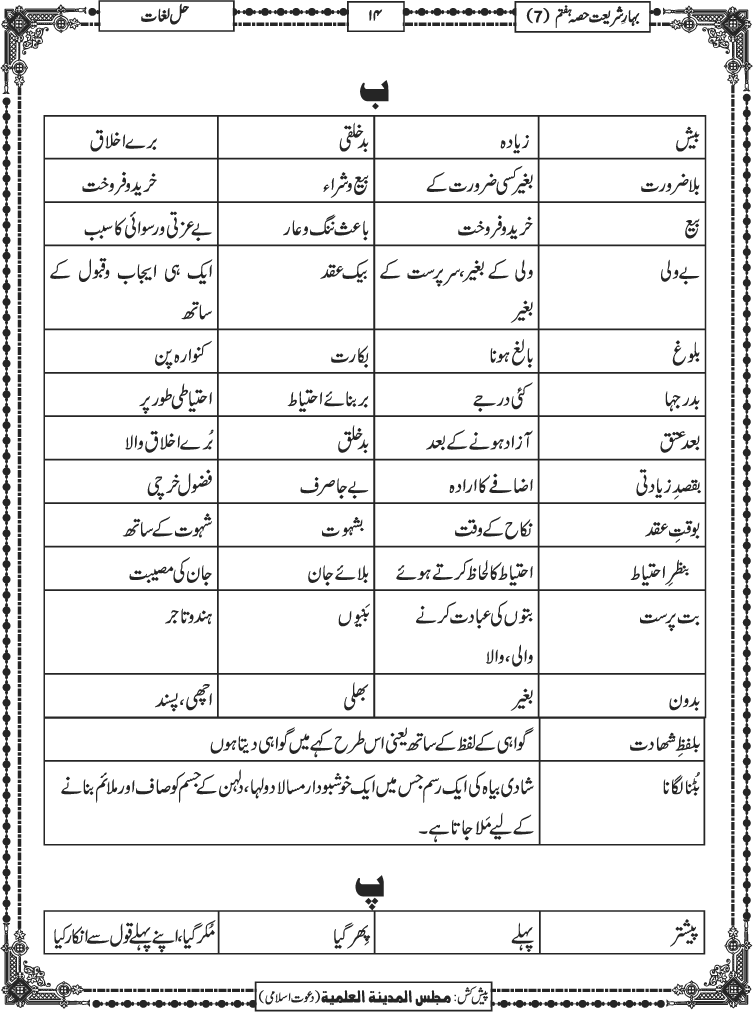 بہارِ شریعت حصہ ہفتم (7)
۱۴
حل لغات
ب
بیش زیادہ بدخلقی برے اخلاق
بلاضرورت بغیر کسی ضرورت کے بیع وشراء خریدوفروخت
بیع خریدوفروخت باعث ننگ وعار بے عزتی ورسوائی کا سبب
بے ولی ولی کے بغیر،سرپرست کے بیک عقد ایک ہی ایجاب وقبول کے
بغیر ساتھ
بلوغ بالغ ہونا بکارت کنوارہ پن
بدرجہا کئی درجے بربنائے احتیاط احتیاطی طور پر
بعد عتق آزاد ہونے کے بعد بدخلق بُرے اخلاق والا
بقصدِ زیادتی اضافے کا ارادہ بے جا صرف فضول خرچی
بوقتِ عقد نکاح کے وقت بشہوت شہوت کے ساتھ
بنظرِ احتیاط احتیاط کا لحاظ کرتے ہوئے بلائے جان جان کی مصیبت
بت پرست بتوں کی عبادت کرنے بَنیوں ہندو تاجر
والی،والا
بدون بغیر بھلی اچھی،پسند
بلفظِ شھادت گواہی کے لفظ کے ساتھ یعنی اس طرح کہے میں گواہی دیتا ہوں
بُٹنا لگانا شادی بیاہ کی ایک رسم جس میں ایک خوشبودار مسالا دولہا،دلہن کے جسم کو صاف اور ملائم بنانے
کے لیے مَلا جاتا ہے۔
پ
پیشتر پہلے پِھر گیا مُکر گیا،اپنے پہلے قول سے انکار کیا
پیش کش: مجلس المدینۃ العلمیۃ (دعوت اسلامی)